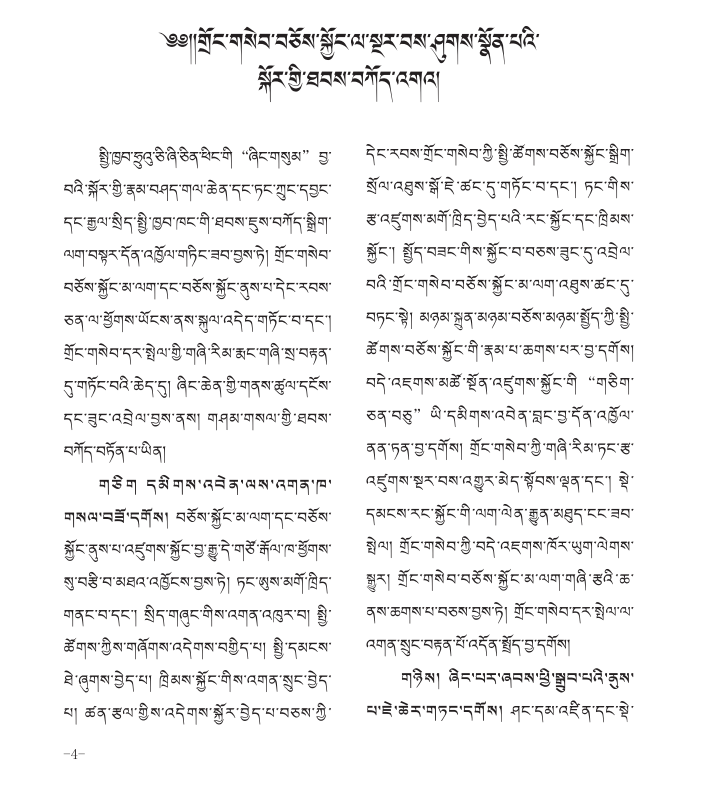 ༄༅།།གྲོང་གསེབ་བཅོས་སྐྱོང་ལ་སྔར་བས་ཤུགས་སྣོན་པའི་
སྐོར་གྱི་ཐབས་བཀོད་འགའ།
སྤྱི་ཁྱབ་ཧྲུའུ་ཅི་ཞི་ཅིན་ཕིང་གི “ཞིང་གསུམ” བྱ་
བའི་སྐོར་གྱི་རྣམ་བཤད་གལ་ཆེན་དང་ཏང་ཀྲུང་དབྱང་
དང་རྒྱལ་སྲིད་སྤྱི་ཁྱབ་ཁང་གི་ཐབས་ཇུས་བཀོད་སྒྲིག་
ལག་བསྟར་དོན་འཁྱོལ་གཏིང་ཟབ་བྱས་ཏེ། གྲོང་གསེབ་
བཅོས་སྐྱོང་མ་ལག་དང་བཅོས་སྐྱོང་ནུས་པ་དེང་རབས་
ཅན་ལ་ཕྱོགས་ཡོངས་ནས་སྐུལ་འདེད་གཏོང་བ་དང་།
གྲོང་གསེབ་དར་སྤེལ་གྱི་གཞི་རིམ་རྨང་གཞི་སྲ་བརྟན་
དུ་གཏོང་བའི་ཆེད་དུ། ཞིང་ཆེན་གྱི་གནས་ཚུལ་དངོས་
དང་ཟུང་འབྲེལ་བྱས་ནས། གཤམ་གསལ་གྱི་ཐབས་
བཀོད་བཏོན་པ་ཡིན།
གཅིག དམིགས་འབེན་ལས་འགན་ཁ་
གསལ་བཟོ་དགོས། བཅོས་སྐྱོང་མ་ལག་དང་བཅོས་
སྐྱོང་ནུས་པ་འཛུགས་སྐྱོང་བྱ་རྒྱུ་དེ་གཙོ་རྒོལ་ཁ་ཕྱོགས་
སུ་བརྩི་བ་མཐའ་འཁྱོངས་བྱས་ཏེ། ཏང་ཨུས་མགོ་ཁྲིད་
གནང་བ་དང་། སྲིད་གཞུང་གིས་འགན་འཁུར་བ། སྤྱི་
ཚོགས་ཀྱིས་གཞོགས་འདེགས་བགྱིད་པ། སྤྱི་དམངས་
ཐེ་ཞུགས་བྱེད་པ། ཁྲིམས་སྐྱོང་གིས་འགན་སྲུང་བྱེད་
པ། ཚན་རྩལ་གྱིས་འདེགས་སྐྱོར་བྱེད་པ་བཅས་ཀྱི་
དེང་རབས་གྲོང་གསེབ་ཀྱི་སྤྱི་ཚོགས་བཅོས་སྐྱོང་སྒྲིག་
སྲོལ་འཐུས་སྒོ་ཇེ་ཚང་དུ་གཏོང་བ་དང་། ཏང་གིས་
རྩ་འཛུགས་མགོ་ཁྲིད་བྱེད་པའི་རང་སྐྱོང་དང་ཁྲིམས་
སྐྱོང་། སྤྱོད་བཟང་གིས་སྐྱོང་བ་བཅས་ཟུང་དུ་འབྲེལ་
བའི་གྲོང་གསེབ་བཅོས་སྐྱོང་མ་ལག་འཐུས་ཚང་དུ་
བཏང་སྟེ། མཉམ་སྐྲུན་མཉམ་བཅོས་མཉམ་སྤྱོད་ཀྱི་སྤྱི་
ཚོགས་བཅོས་སྐྱོང་གི་རྣམ་པ་ཆགས་པར་བྱ་དགོས།
བདེ་འཇགས་མཚོ་སྔོན་འཛུགས་སྐྱོང་གི “གཅིག་
ཅན་བཅུ” ཡི་དམིགས་འབེན་བླང་བྱ་དོན་འཁྱོལ་
ནན་ཏན་བྱ་དགོས། གྲོང་གསེབ་ཀྱི་གཞི་རིམ་ཏང་རྩ་
འཛུགས་སྔར་བས་འགྱུར་མེད་སྟོབས་ལྡན་དང་། སྡེ་
དམངས་རང་སྐྱོང་གི་ལག་ལེན་རྒྱུན་མཐུད་ངང་ཟབ་
སྤེལ། གྲོང་གསེབ་ཀྱི་བདེ་འཇགས་ཁོར་ཡུག་ལེགས་
སྒྱུར། གྲོང་གསེབ་བཅོས་སྐྱོང་མ་ལག་གཞི་རྩའི་ཆ་
ནས་ཆགས་པ་བཅས་བྱས་ཏེ། གྲོང་གསེབ་དར་སྤེལ་ལ་
འགན་སྲུང་བརྟན་པོ་འདོན་སྤྲོད་བྱ་དགོས།
གཉིས། ཞིང་པར་ཞབས་ཕྱི་སྒྲུབ་པའི་ནུས་
པ་ཇེ་ཆེར་གཏང་དགོས། ཤང་དམ་འཛིན་དང་སྡེ་
–4–